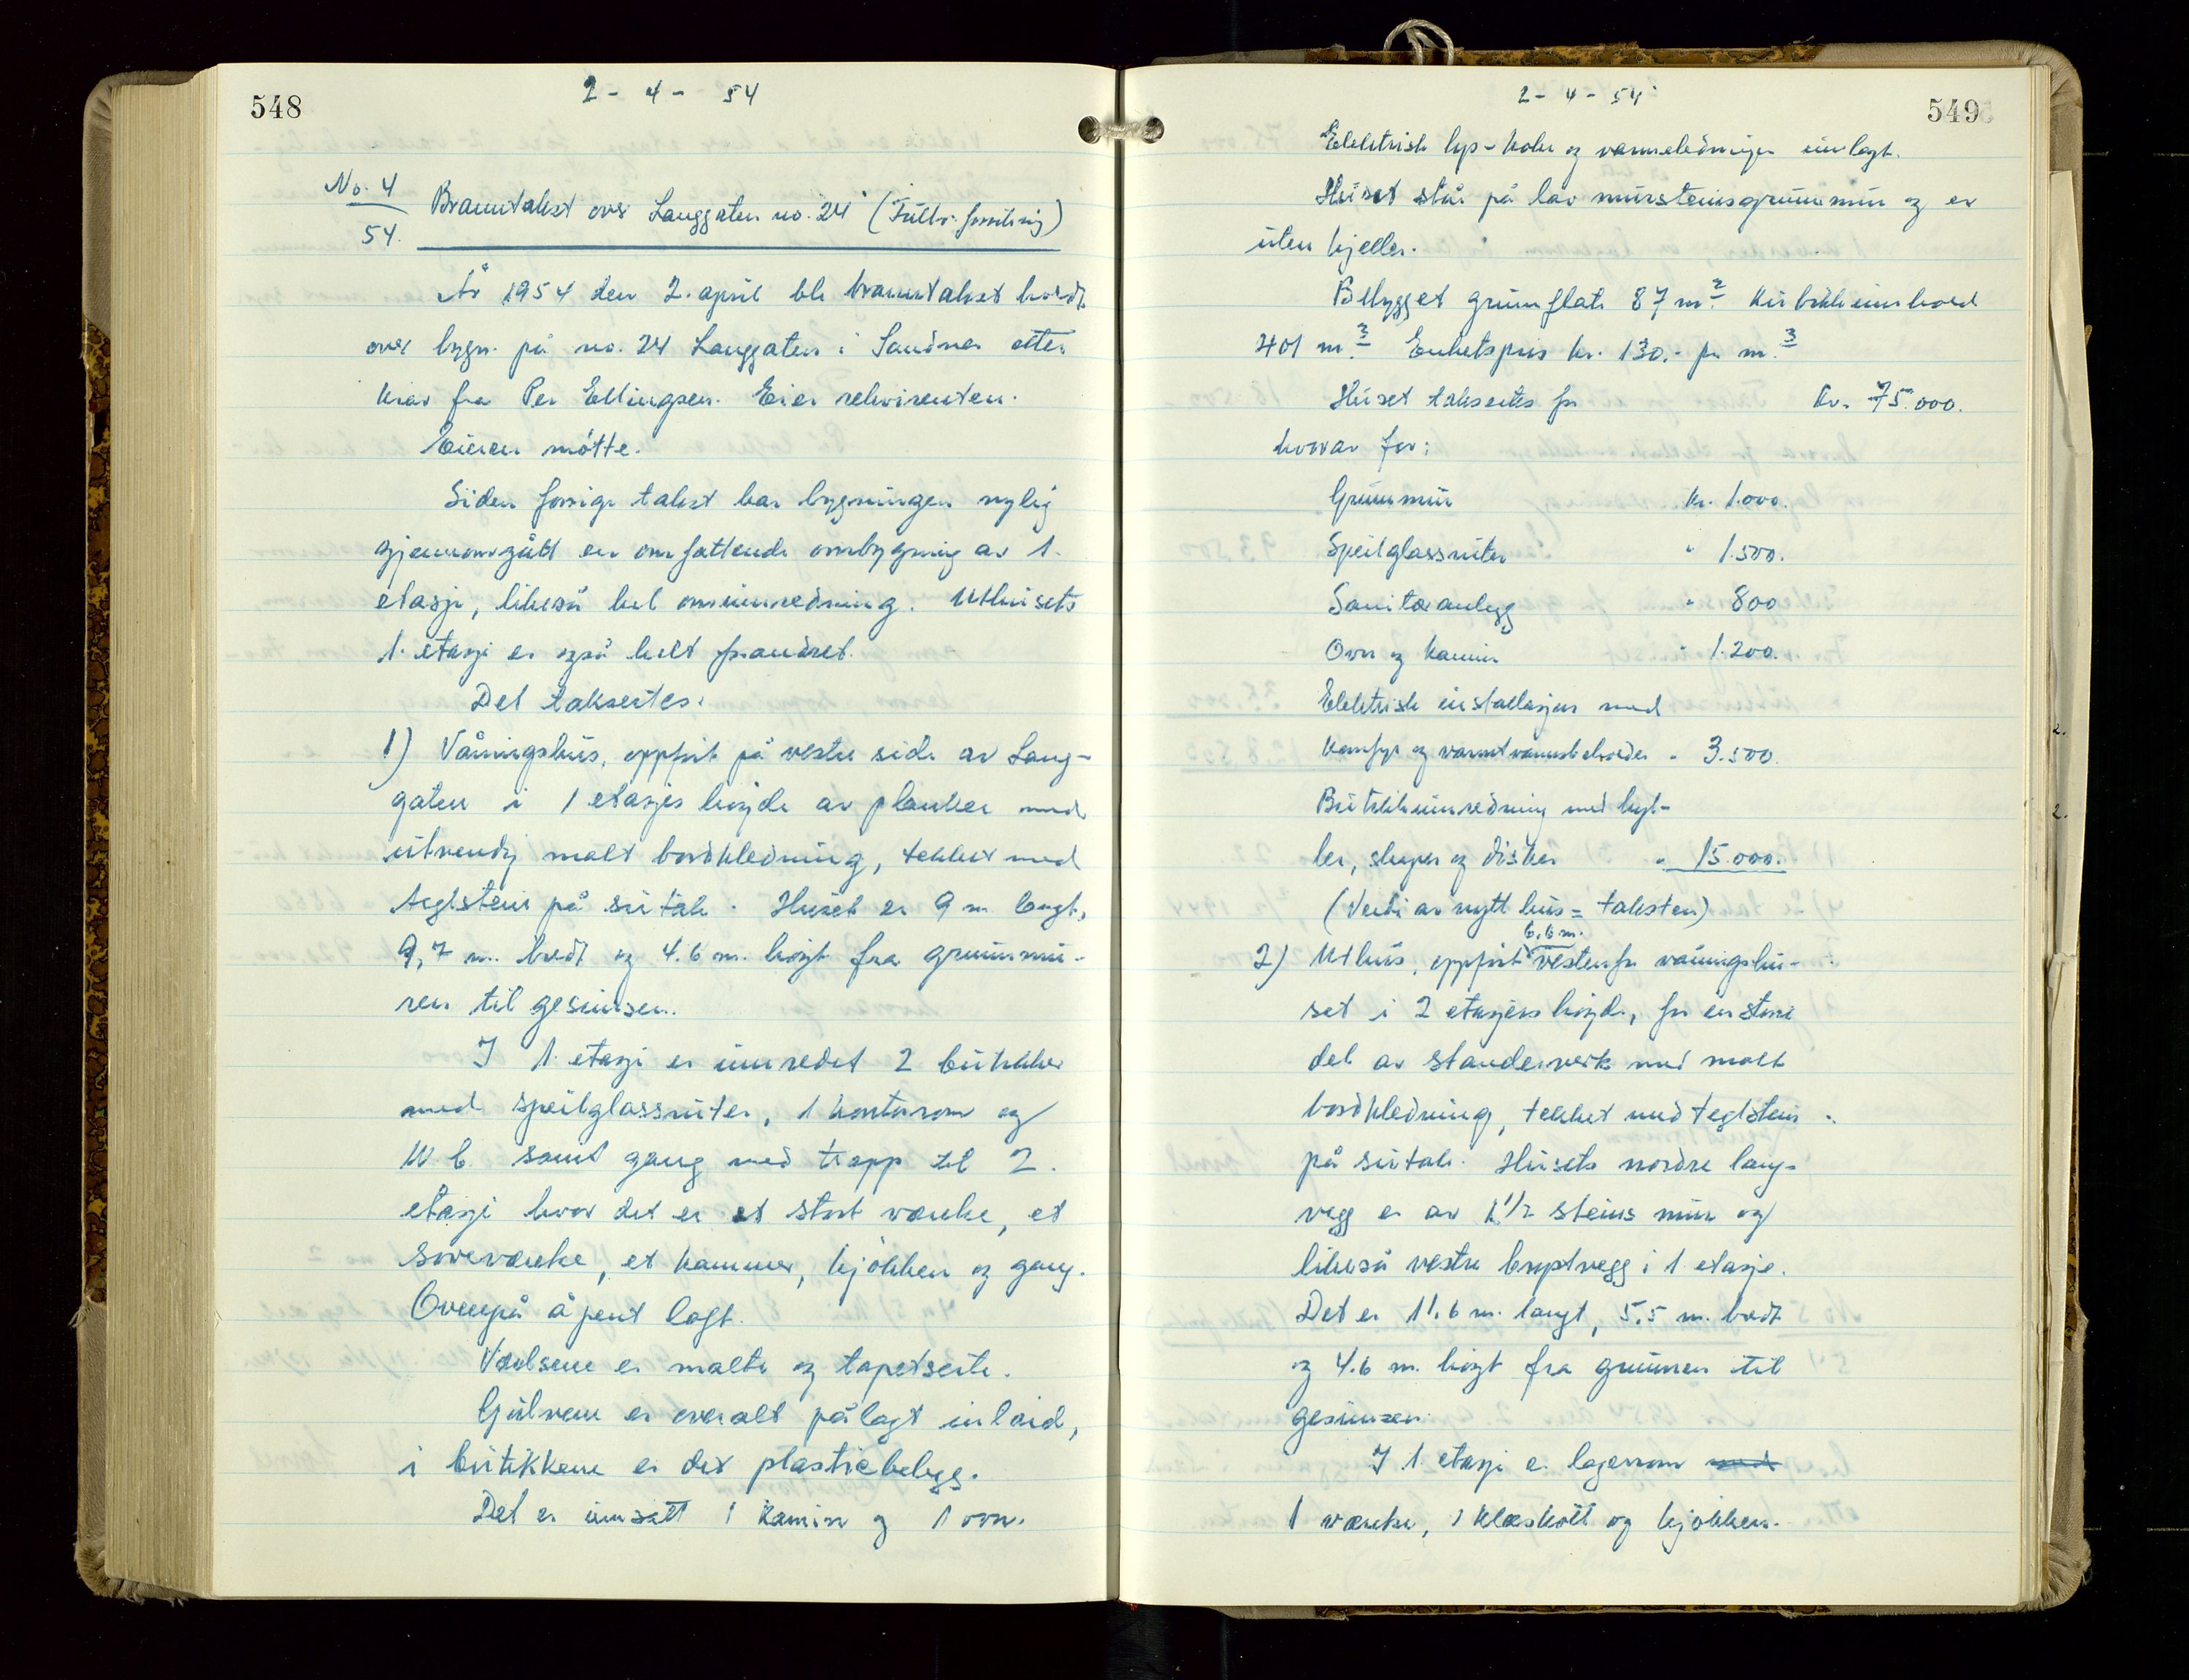 548
2 - 4 - 54
No. 4
54.
Branntakst over Langgaten no. 24 (Fullv. forsikring)
År 1954 den 2. april ble branntakst holdt
over bygn. på no. 24 Langgaten i Sandnes etter
krav fra Per Ellingsen. Eier rekvirenten.
Eieren møtte.
Siden forrige takst har bygningen nylig
gjennomgått en omfattende ombygning av 1.
etasje, likeså hel ominnredning. Uthusets
1. etasje er også helt forandret.
Det takseertes:
1) Våningshus, oppført på vestre side av Lang-
gaten i 1 etasjes høyde av planker med
utvendig malt bordkledning, tekket med
teglstein på sutak. Huset er 9 m. langt,
9,7 m. bredt og 4.6 m. høyt fra grunnmu-
ren til gesimsen.
I 1. etasje er innredet 2 butikker
med speilglassruter, 1 kontorrom og
W.C. samt gang med trapp til 2.
etasje hvor det er et stort værelse, et
soveværelse, et kammer, kjøkken og gang.
Ovenpå åpent loft.
Værelsene er malte og tapetserte.
Gulvene er overalt pålagt inlaid,
i butikkene er det plasticbelegg.
Det er innsatt 1 kamin og 1 ovn.
2 - 4 - 54
549
Elektrisk lys- koke og varmeledninger innlagt.
Huset står på lav mursteinsgrunnmur og er
uten kjeller.
Bebygget grunnflate 87 m². Kubikkinnhold
401 m³. Enhetspris kr. 130.- pr m.³
Huset takseertes for Kr. 75.000.
hvorav for:
Grunnmur kr. 1.000.
Speilglassruter " 1.500.
Sanitæranlegg " 800
Ovn og kamin " 1.200.
Elektrisk installasjon med
komfyr og varmtvannsbeholder " 3.500.
Butikkinnredning med hyl-
ler, skaper og disker " 15.000.
(Verdi av nytt hus = taksten)
6,6 m.
2) Uthus, oppført vestenfor våningshu-
set i 2 etasjers høyde, for en større
del av standerverk med malt
bordkledning, tekket med teglstein
på sutak. Husets nordre lang-
vegg er av 1 1/2 steins mur og
likeså vestre langvegg i 1 etasje.
Det er 11,6 m. langt, 5,5 m. bredt
og 4.6 m. høyt fra grunnen til
gesimsen.
I 1. etasje er lagerrom med
1 værelse, 1 kleskott og kjøkken.